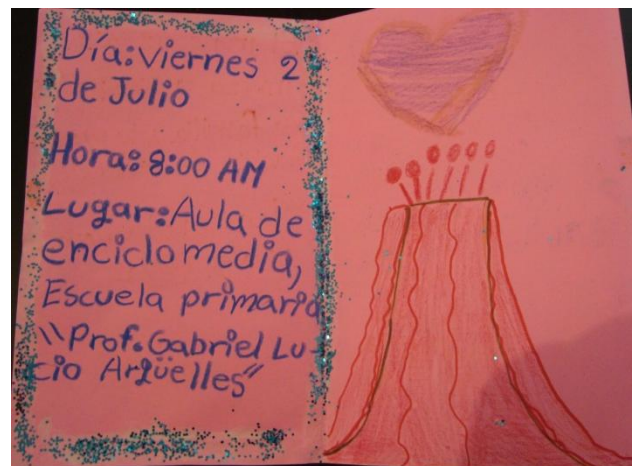 Día: Viernes 2
de Julio
Hora: 8:00 AM
Lugar: Aula de
enciclomedia,
Escuela primaria
"Prof. Gabriel Lu-
cio Argüelles"